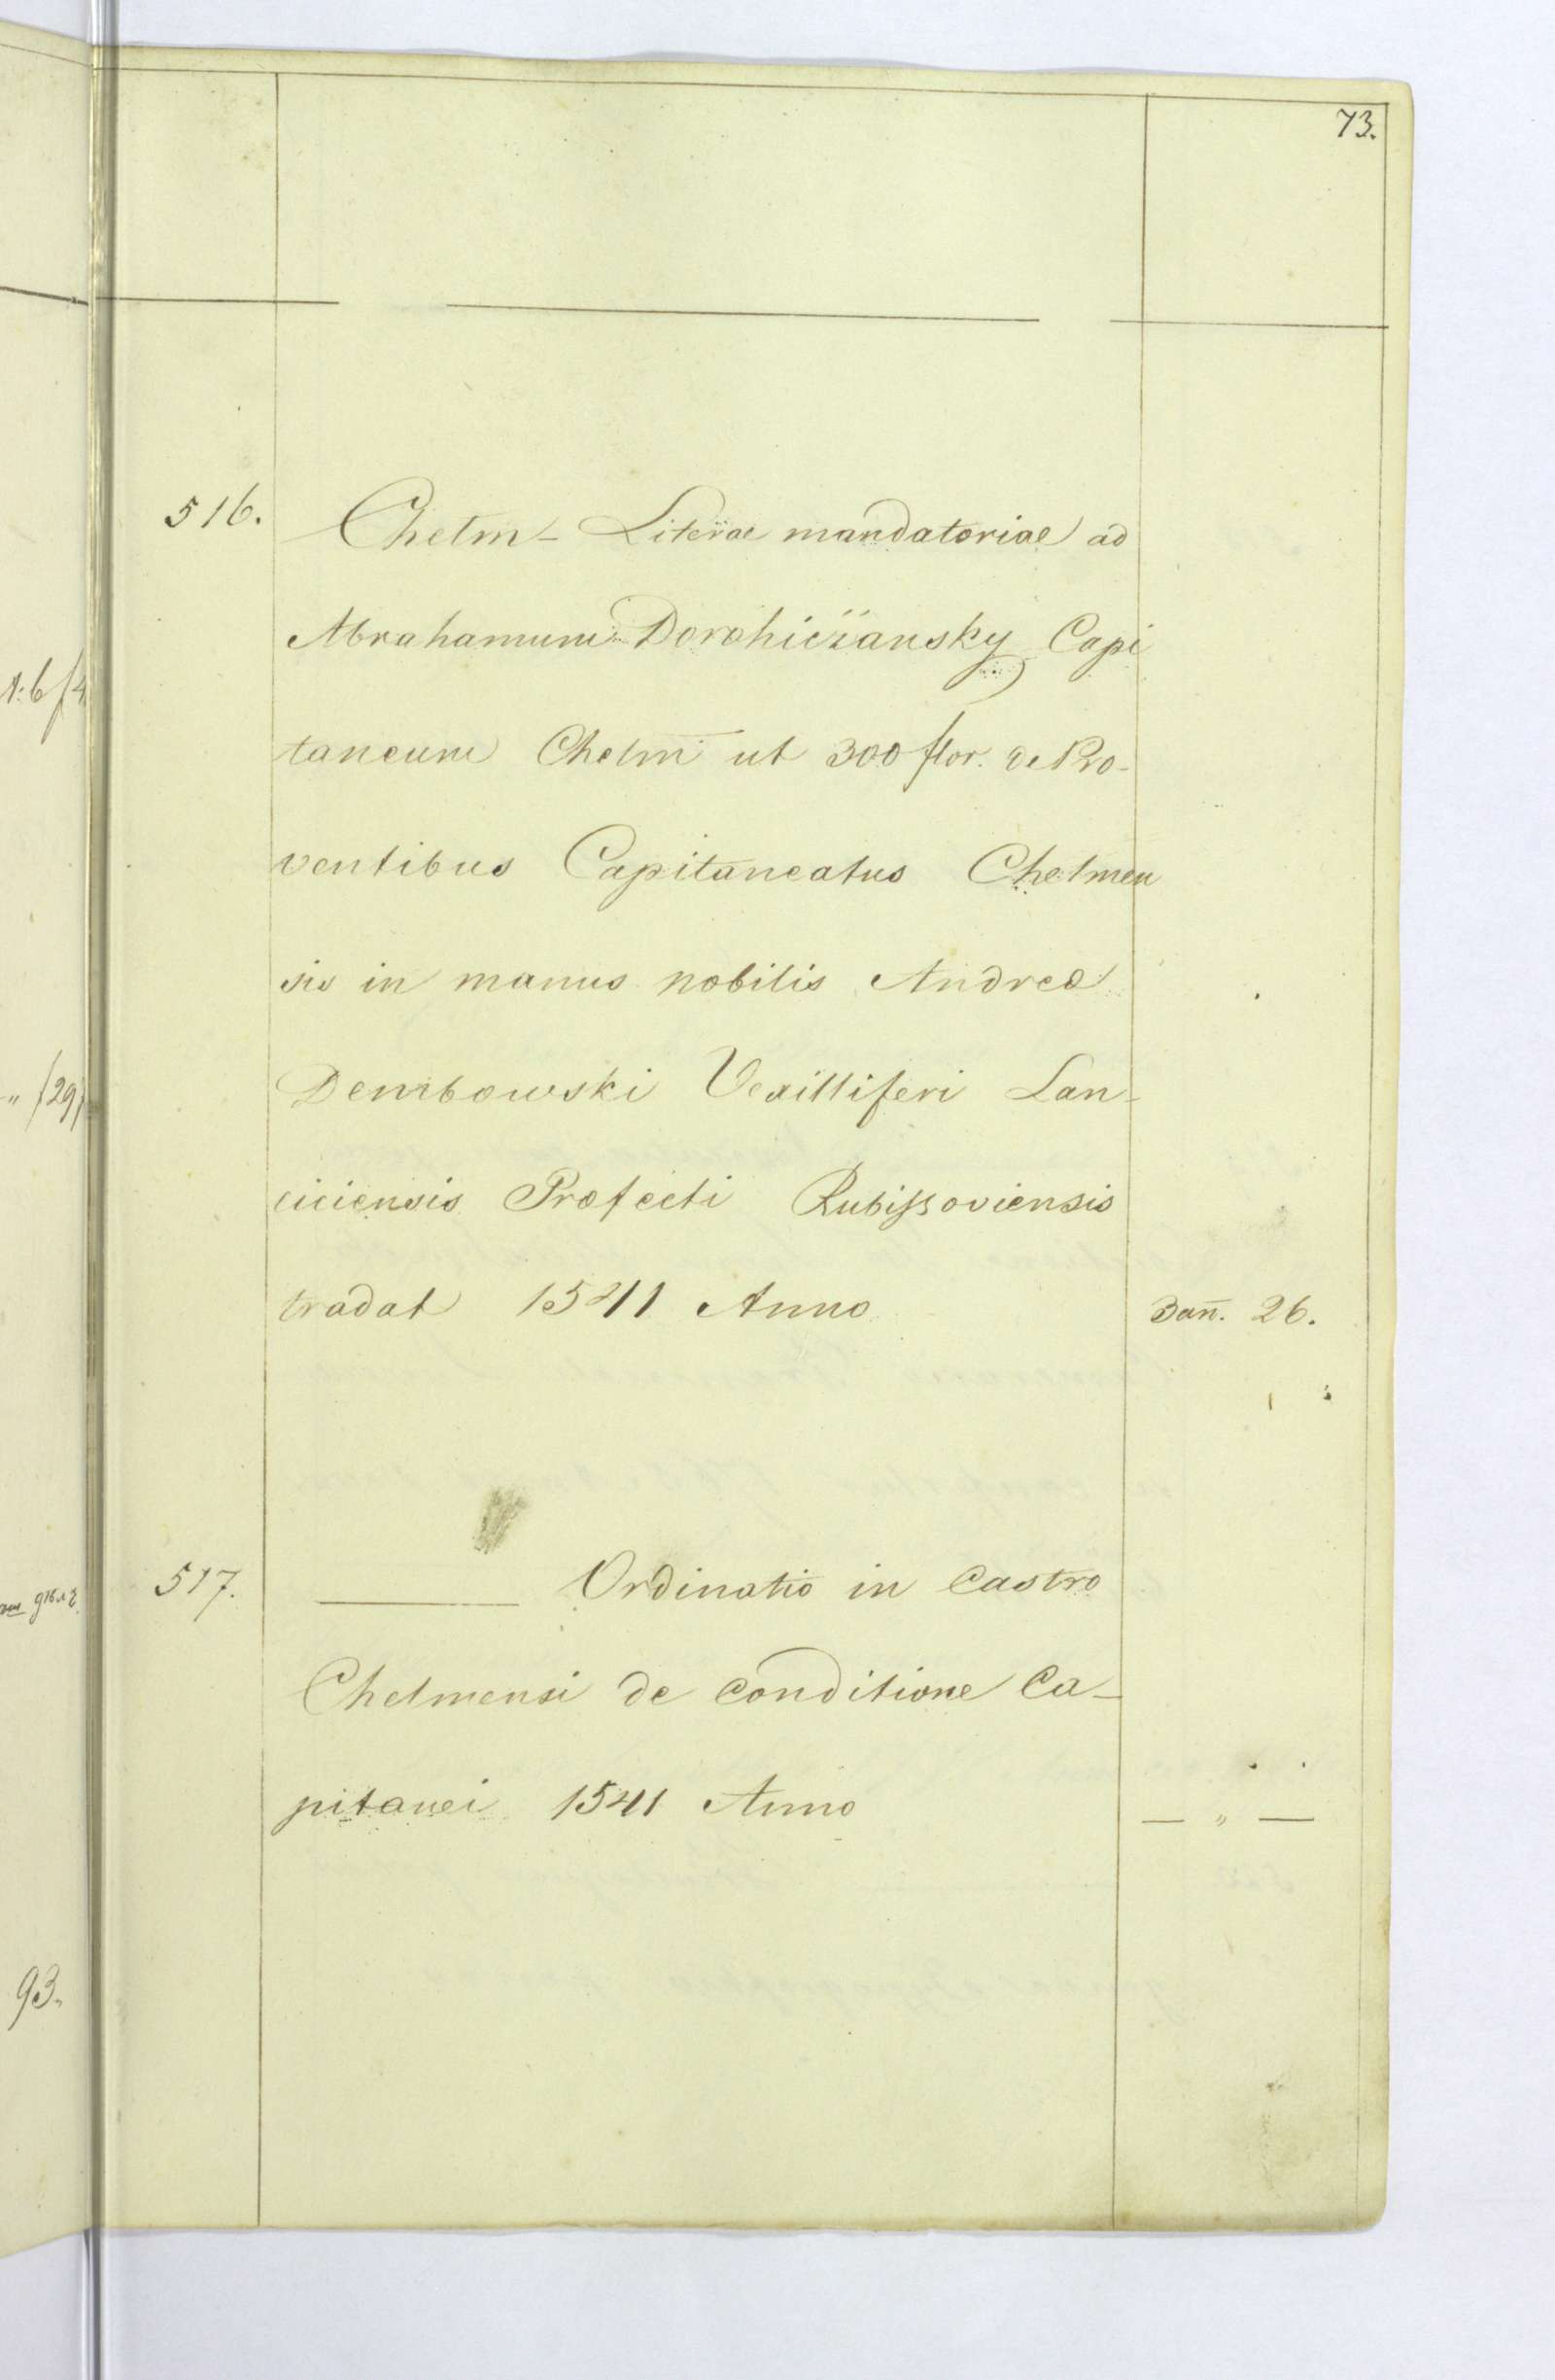 73.
516. Chelm - Literae mandatoriae ad
Abrahamum Dorohiczansky Capi
taneum Chelm ut 300 flor. de Pro-
ventibus Capitaneatus Chelmen
sis in manus nobilis Andreæ
Dembowski Vexilliferi Lan-
ciciensis Præfecti Rubissoviensis
tradat 1541 Anno Зап. 26.
517. ——— Ordinatio in Castro
Chelmensi de conditione Ca-
pitanei 1541 Anno — " —
93.